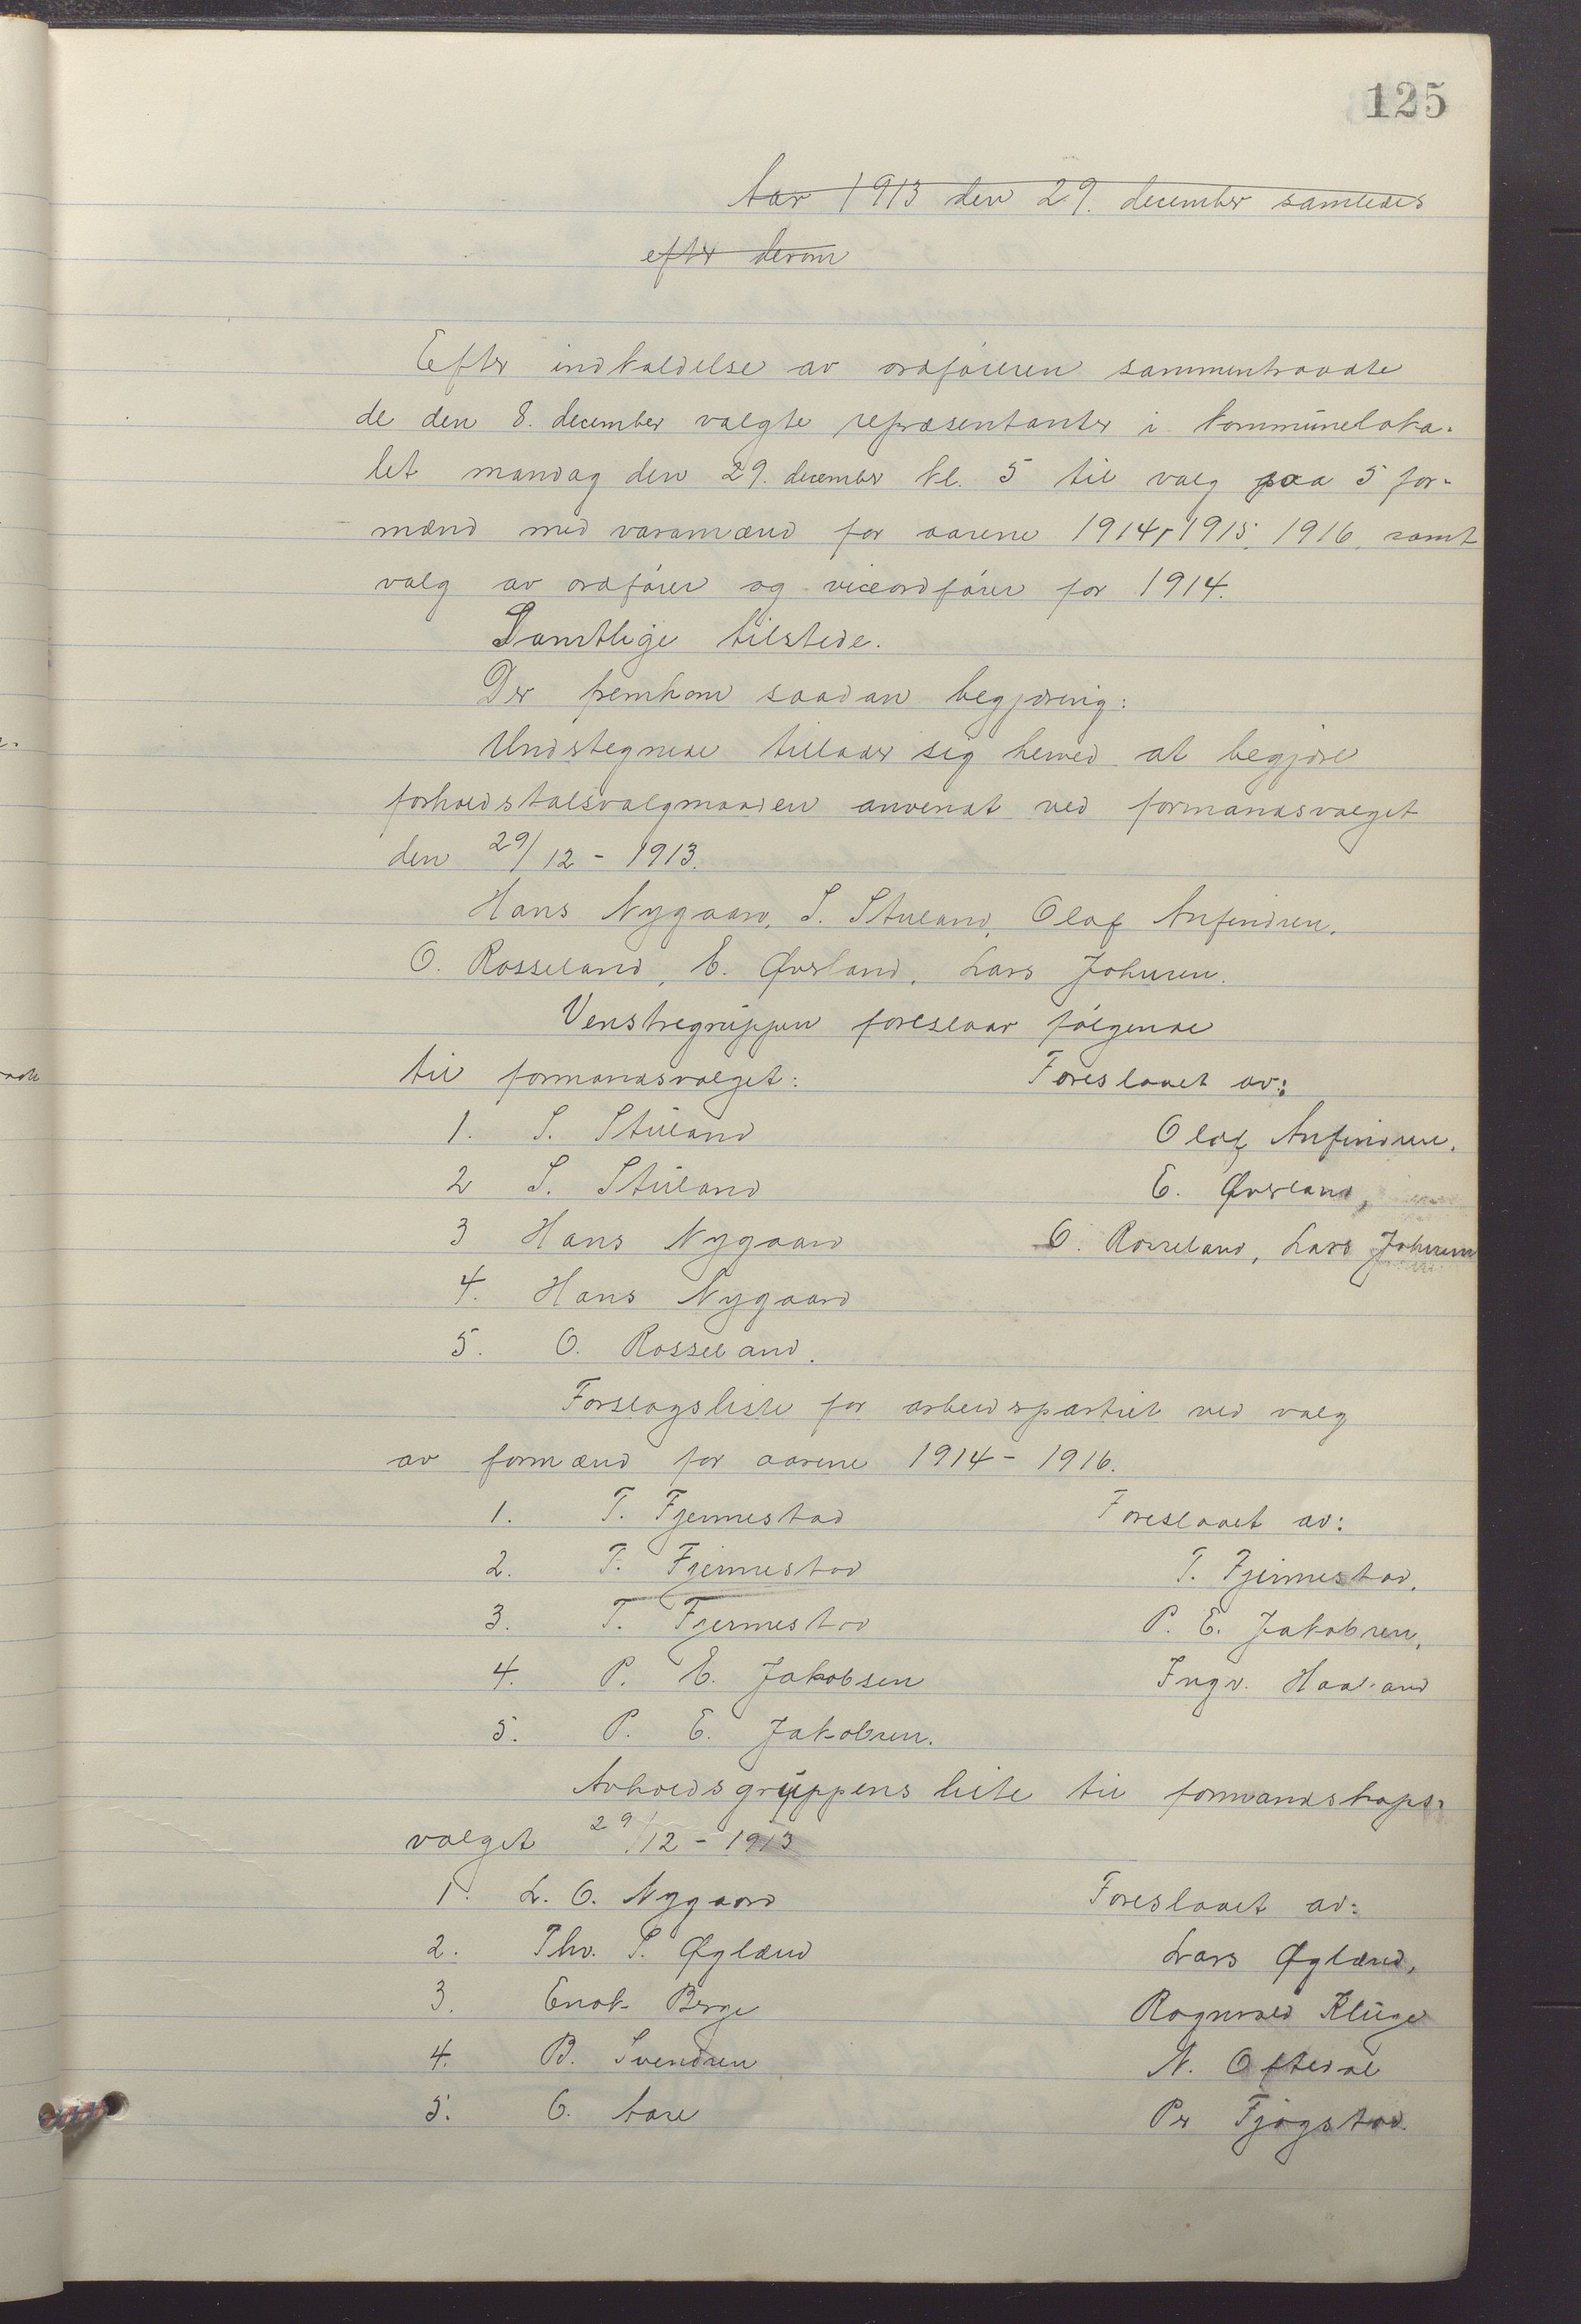 125
Aar 1913 den 29. december samledes
efter derom
Efter indkaldelse av ordføreren sammentraadte
de den 8. december valgte repræsentanter i kommuneloka-
let mandag den 29. december kl. 5 til valg paa 5 for-
mænd med varamænd for aarene 1914, 1915, 1916, samt
valg av ordfører og viceordfører for 1914.
Samtlige tilstede.
Der fremkom saadan begjæring:
Undertegnede tillader sig herved at begjære
forholdstalsvalgmaaden anvendt ved formandsvalget
den 29/12 - 1913.
Hans Nygaard, S. Stueland, Olaf Anfindsen,
O. Rosseland, E. Øverland, Lars Johnsen.
Venstregruppen foreslaar følgende
til formandsvalget:
Foreslaaet av:
1. S. Stueland
Olaf Anfindsen,
2 S. Stueland
E. Øverland,
3 Hans Nygaard
O. Rosseland, Lars Johnsen
4. Hans Nygaard
5. O. Rosseland.
Forslagsliste for arbeidspartiet ved valg
av formænd for aarene 1914 - 1916.
1. T. Fjermestad
Foreslaaet av:
2. T. Fjermestad
T. Fjermestad,
3. T. Fjermestad
P. E. Jakobsen,
4. P. E. Jakobsen
Ingv. Haaland
5. P. E. Jakobsen.
Avholdsgruppens liste til formandskaps-
valget 29/12 - 1913
1. L. O. Nygaard
Foreslaaet av:
2. Thv. S. Øglænd
Lars Øglænd,
3. Enok Berge
Ragnvald Kluge
4. B. Svendsen
N. Oftedal
5. O. Aase
Per Fjogstad.